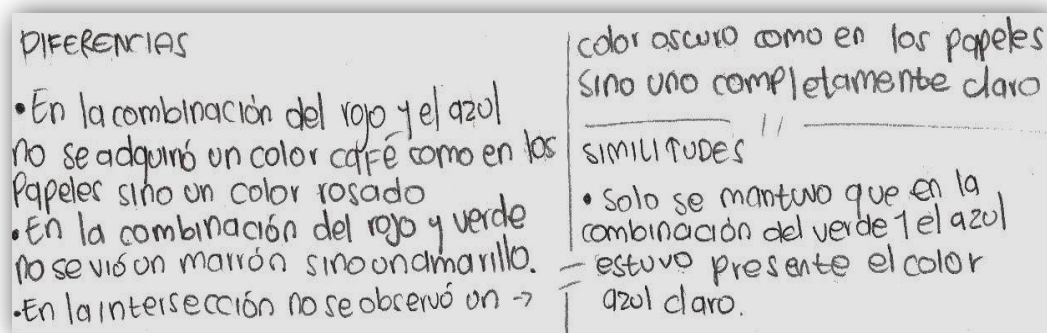 DIFERENCIAS
•En la combinación del rojo y el azul
no se adquirió un color café como en los
Papeles sino un color rosado
•En la combinación del rojo y verde
no se vió un marrón sino un amarillo.
•En la intersección no se observó un →
color oscuro como en los papeles
sino uno completamente claro
//
SIMILITUDES
• Solo se mantuvo que en la
combinación del verde y el azul
estuvo presente el color
azul claro.